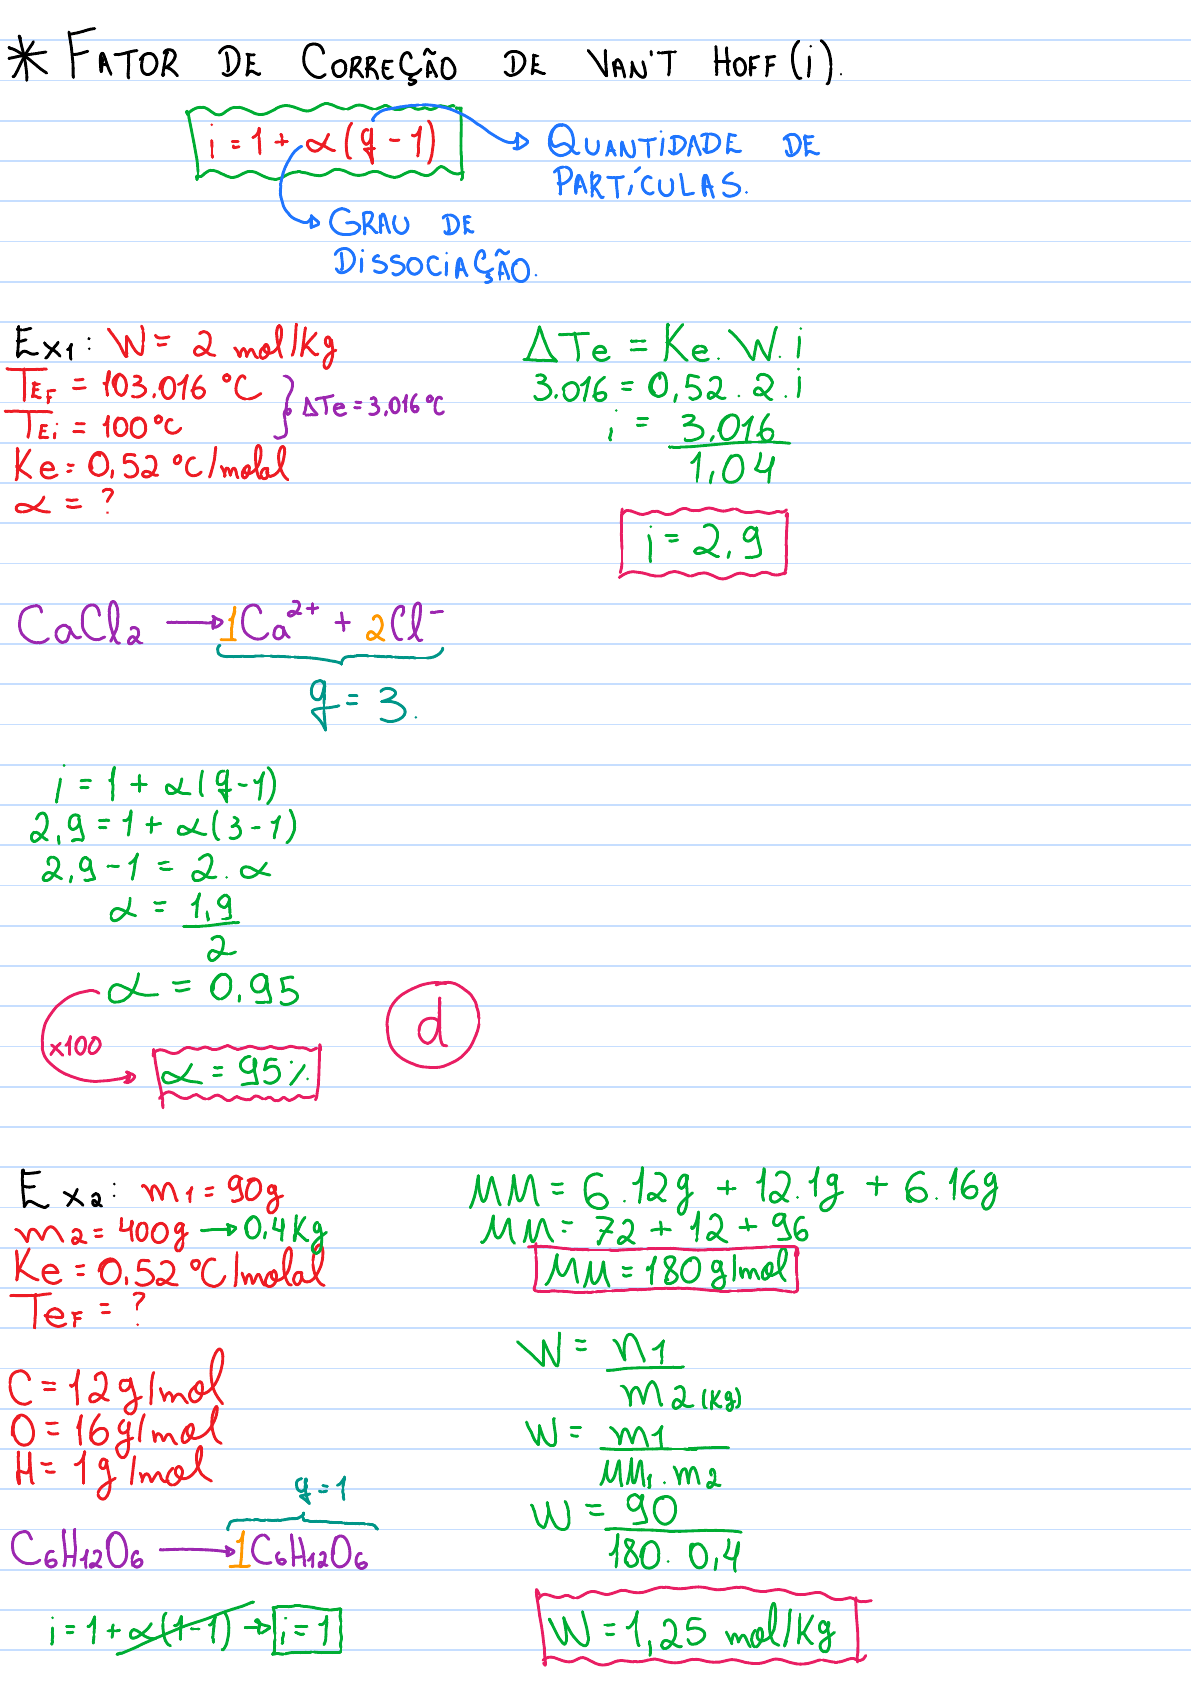 * FATOR DE CORREÇÃO DE VAN'T HOFF (i).
i = 1 + α (q - 1)
QUANTIDADE DE
PARTÍCULAS.
GRAU DE
DISSOCIAÇÃO.
Ex1: W = 2 mol/Kg
TEF = 103.016 °C
TEi = 100°C
ΔTe = 3,016°C
Ke = 0,52 °C/molal
α = ?
ΔTe = Ke. W. i
3.016 = 0,52. 2. i
i = 3,016
1,04
i = 2,9
CaCl2 → 1Ca2+ + 2Cl-
q = 3.
i = 1 + α (q-1)
2,9 = 1 + α (3-1)
2,9 - 1 = 2. α
α = 1,9
2
α = 0,95
x100
α = 95%
d
Ex2: m1 = 90g
m2 = 400g → 0,4Kg
Ke = 0,52 °C/molal
TeF = ?
C = 12g/mol
O = 16g/mol
H = 1g/mol
q = 1
C6H12O6 → 1C6H12O6
i = 1 + α(1-1) → i = 1
MM = 6.12g + 12.1g + 6.16g
MM = 72 + 12 + 96
MM = 180g/mol
W = n1
m2(Kg)
W = m1
MM1. m2
W = 90
180. 0,4
W = 1,25 mol/Kg